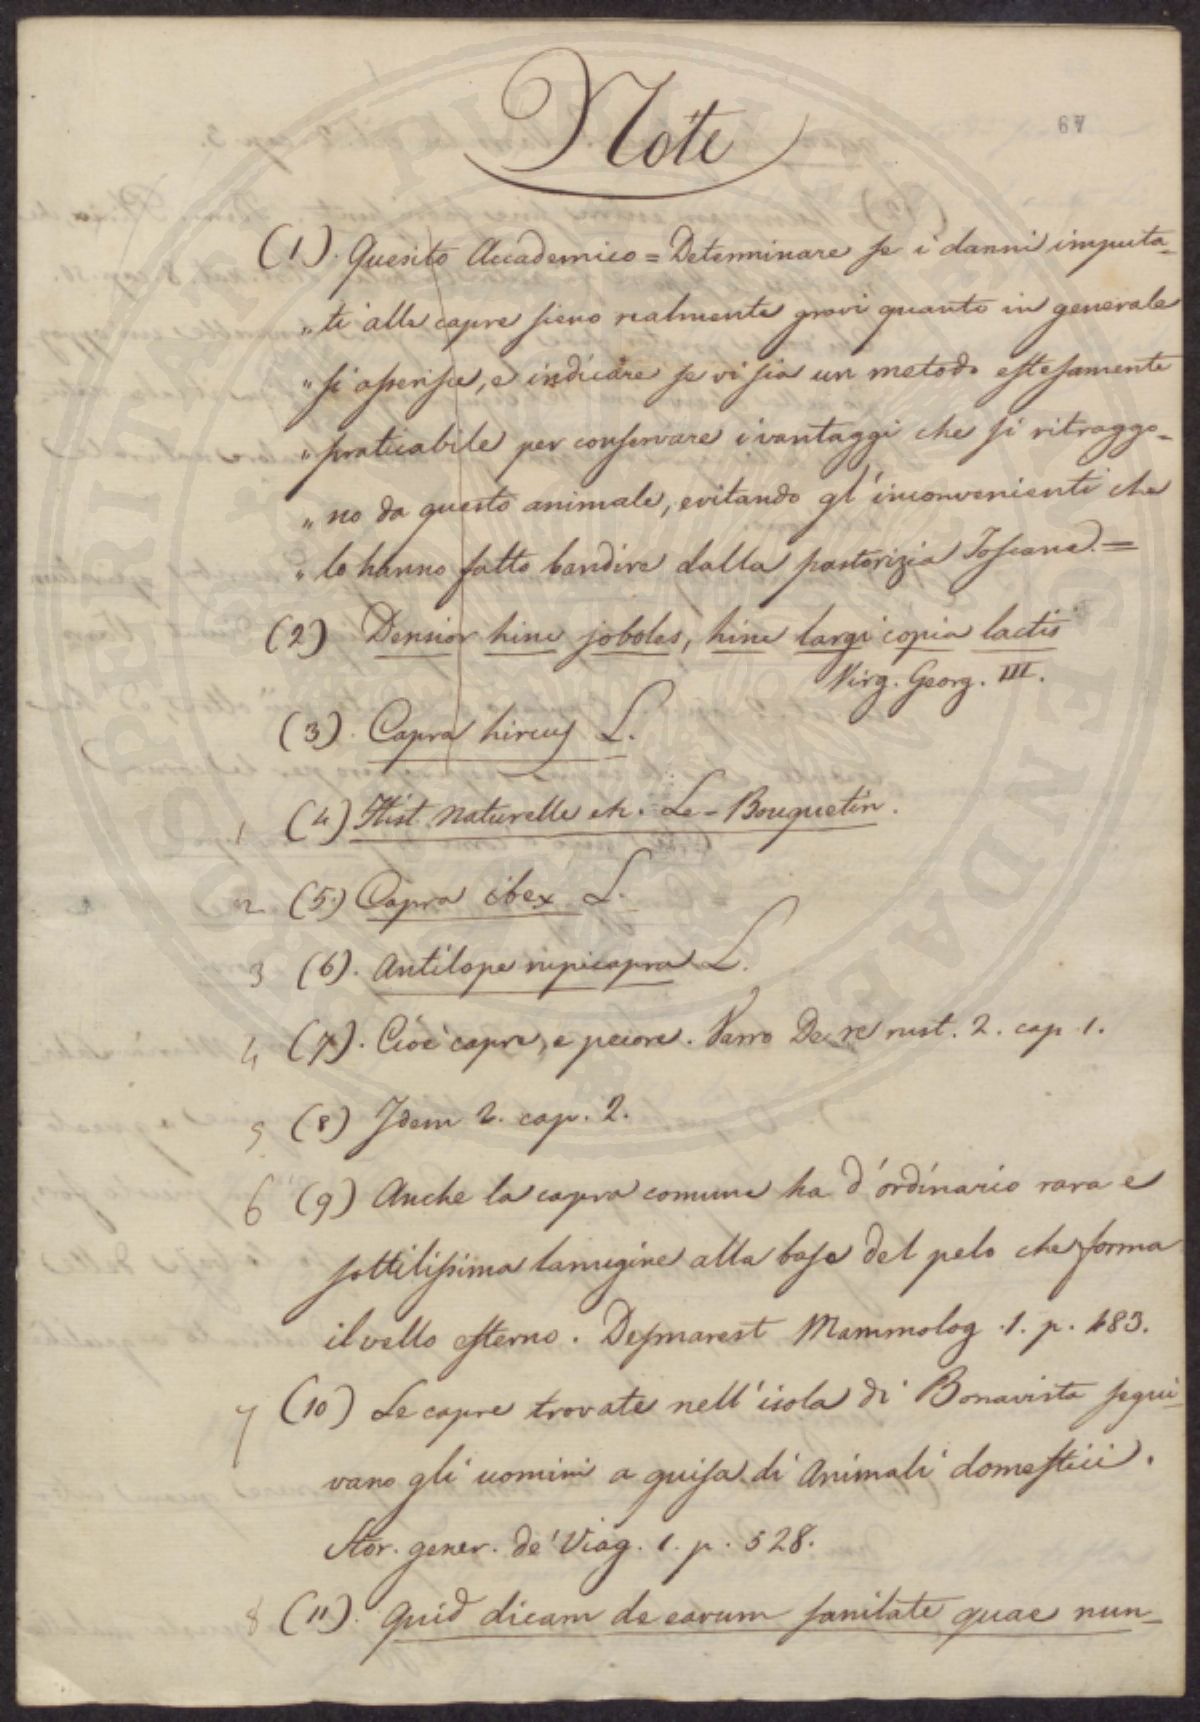 67
Note
(1). Quesito Accademico = Determinare se i danni imputa-
" ti alle capre sieno realmente gravi quanto in generale
" si asserisce, e indicare se vi sia un metodo estesamente
" praticabile per conservare i vantaggi che si ritraggo-
" no da questo animale, evitando gl'inconvenienti che
" lo hanno fatto bandire dalla pastorizia Toscana. =
(2) Densior hinc soboles, hinc largi copia lactis
Virg. Georg. III.
(3). Capra hircus L.
1 (4) Hist. naturelle etc. Le-Bouquetin.
2 (5) Capra ibex L.
3 (6). Antilope rupicapra L.
4 (7). Cioè capre, e pecore. Varro De re rust. 2. cap. 1.
5 (8) Idem 2. cap. 2.
6 (9) Anche la capra comune ha d'ordinario rara e
sottilissima lanugine alla base del pelo che forma
il vello esterno. Desmarest Mammolog. 1. p. 483.
7 (10) Le capre trovate nell'isola di Bonavista segui-
vano gli uomini a guisa di Animali domestici.
Stor. gener. de' Viag. 1. p. 528.
8 (11). Quid dicam de earum sanitate quae nun-